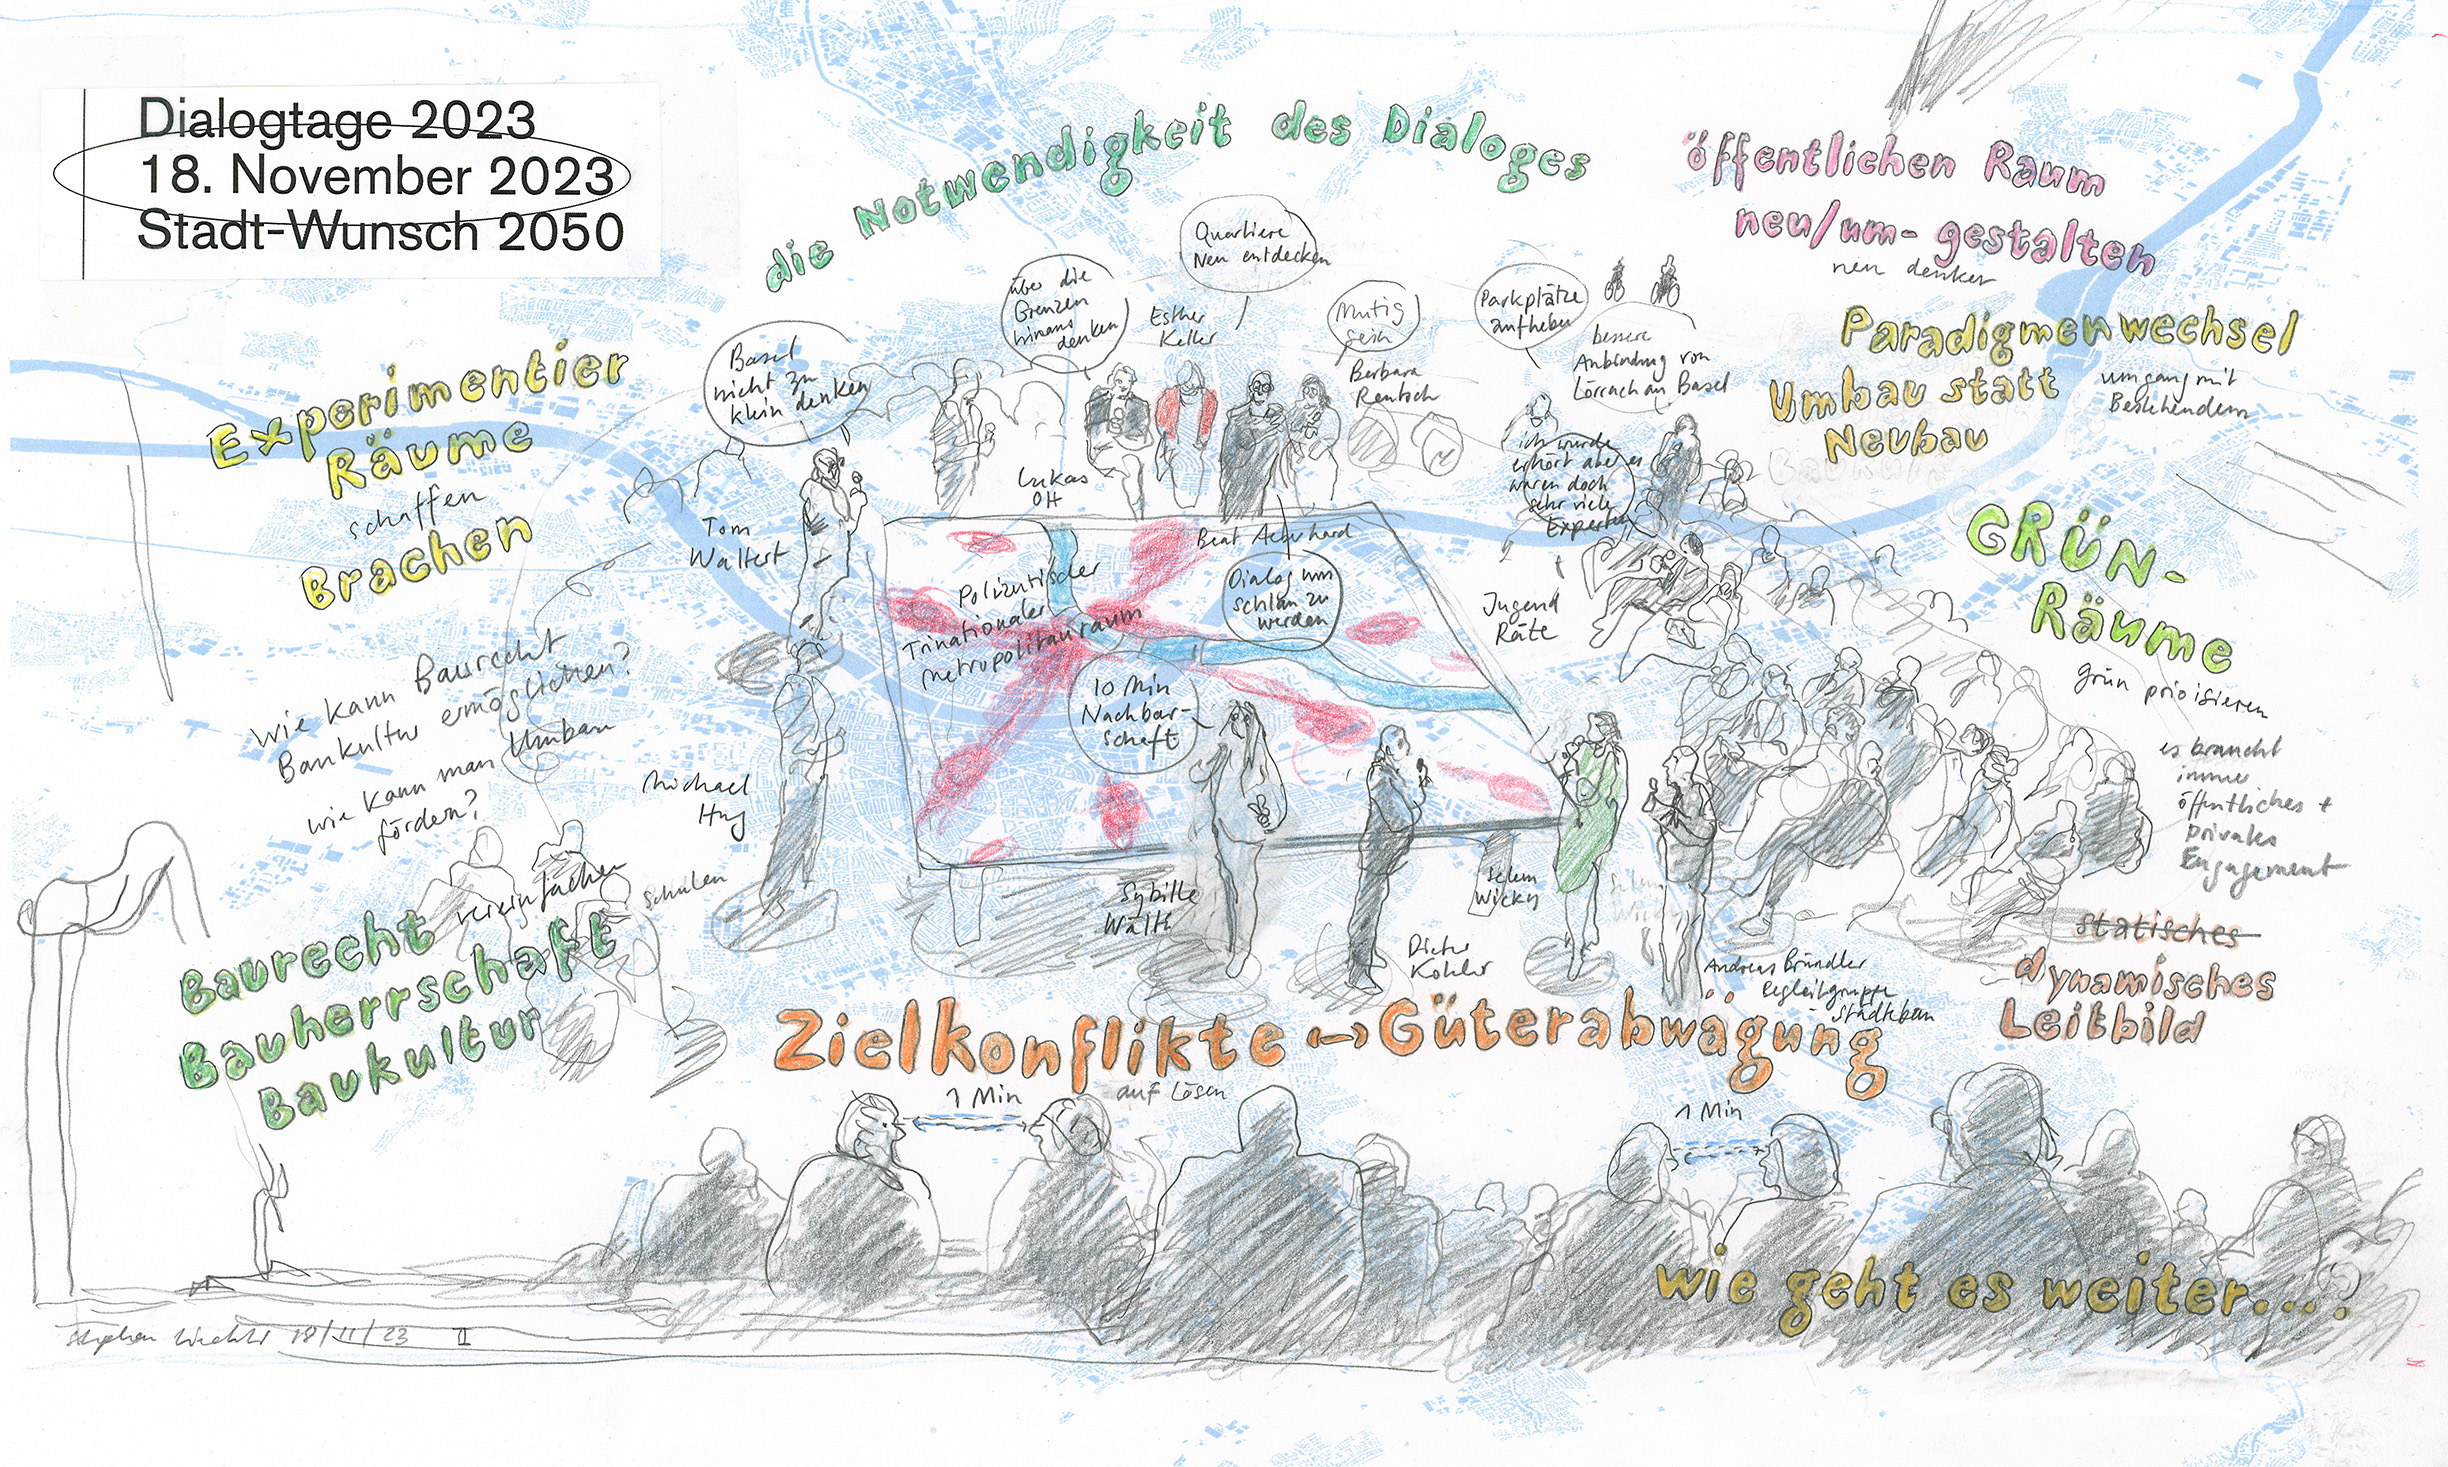 Dialogtage 2023
18. November 2023
Stadt-Wunsch 2050
die Notwendigkeit des Dialoges
öffentlichen Raum
neu/um-gestalten
neu denken
Paradigmenwechsel
Umbau statt
Neubau
umgang mit
Bestehendem
Experimentier
Räume
schaffen
Brachen
Basel
nicht zu
klein denken
über die
Grenzen
hinaus
denken
Quartiere
Neu entdecken
Esther
Keller
mutig
sein
Barbara
Rentsch
Parkplätze
aufheben
bessere
Anbindung von
Lörrach an Basel
ich wurde
erhört aber es
waren doch
sehr viele
Experten
Lukas
Ott
Tom
Waltert
Beat Aeberhard
Dialog um
schlau zu
werden
Polizentrischer
Trinationaler
metropolitanraum
10 Min
Nachbar-
schaft
Jugend
Räte
GRÜN-
Räume
grün prioisieren
es braucht
immer
öffentliches +
privates
Engagement
wie kann Baurecht
Baukultur ermöglichen?
wie kann man Umbau
fördern?
Michael
Hug
vereinfachen
Schulen
Baurecht
Bauherrschaft
Baukultur
Sybille
Wälti
Dieter
Kohler
Selem
Wicky
Andreas Bründler
Begleitgruppe
Städtebau
statisches
dynamisches
Leitbild
Zielkonflikte ↔ Güterabwägung
auf lösen
1 Min
1 Min
wie geht es weiter....?
18/11/23 II